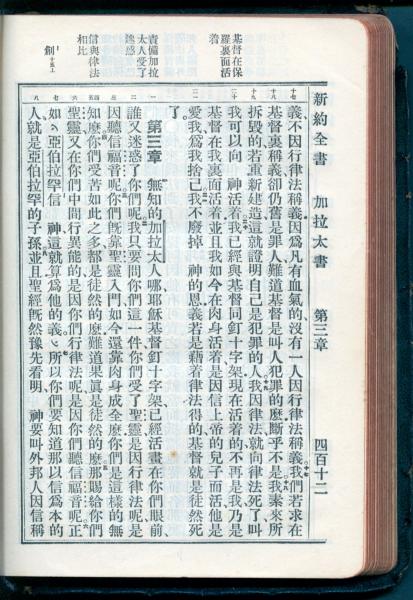 新約全書　加拉太書　第三章　四百十二
基督在保
羅裏面活
着
責備加拉
太人受了
迷惑
信與律法
相比
創十五6
十七
十八
十九
二十
二一
一
二
三
四五
六
七
八
義不因行律法稱義因爲凡有血氣的沒有一人因行律法稱義我們若求在
基督裏稱義卻仍舊是罪人難道基督是叫人犯罪的麼斷乎不是我素來所
拆毀的若重新建造這就證明自己是犯罪的人我因律法就向律法死了叫
我可以向　神活着我已經與基督同釘十字架現在活着的不再是我乃是
基督在我裏面活着並且我如今在肉身活着是因信上帝的兒子而活他是
愛我爲我捨己我不廢掉　神的恩義若是藉着律法得的基督就是徒然死
了
第三章　無知的加拉太人哪耶穌基督釘十字架已經活畫在你們眼前
誰又迷惑了你們呢我只要問你們這一件你們受了聖靈是因行律法呢是
因聽信福音呢你們既靠聖靈入門如今還靠肉身成全麼你們是這樣的無
知麼你們受苦如此之多都是徒然的麼難道果眞是徒然的麼那賜給你們
聖靈又在你們中間行異能的是因你們行律法呢是因你們聽信福音呢正
如亞伯拉罕信　神這就算爲他的義所以你們要知道那以信爲本的
人就是亞伯拉罕的子孫並且聖經既然豫先看明　神要叫外邦人因信稱